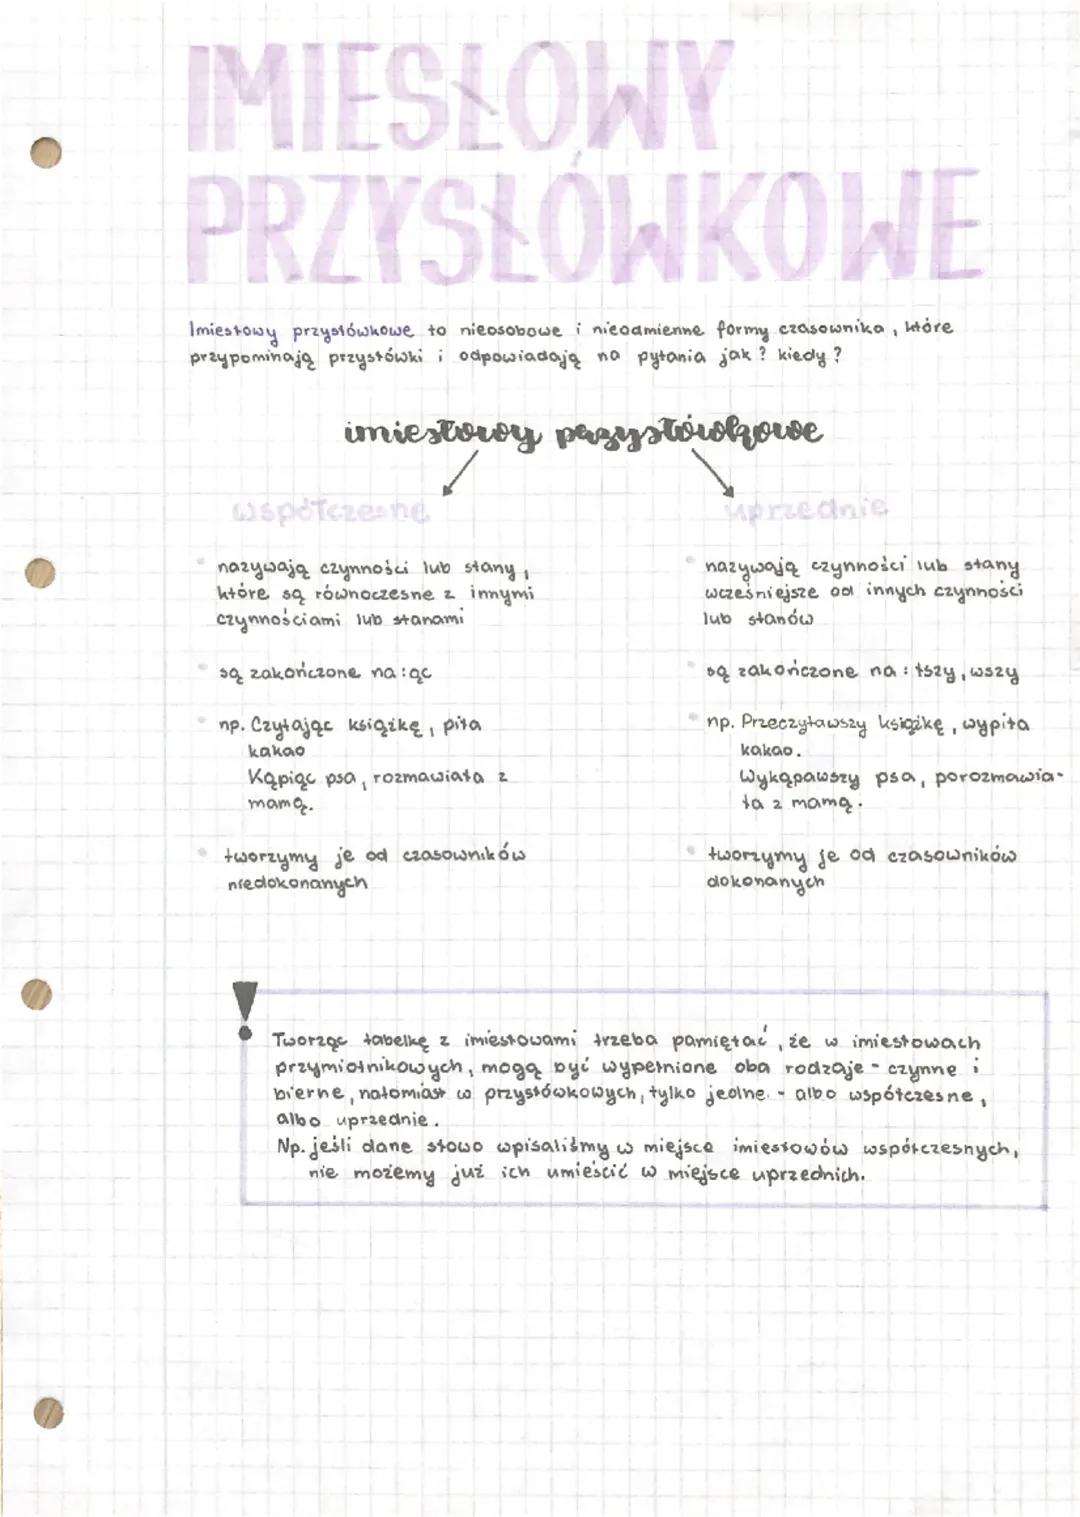 IMIESŁOWY
PRZYSŁÓWKOWE
Imiesłowy przysłówkowe to nieosobowe i nieodmienne formy czasownika, które
przypominają przysłówki i odpowiadają na pytania jak? kiedy?
imiesłowy przysłówkowe
współczesne
uprzednie
nazywają czynności lub stany,
które są równoczesne z innymi
czynnościami lub stanami
są zakończone na: ąc
np. Czytając książkę, piła
kakao
Kąpiąc psa, rozmawiała z
mamą.
tworzymy je od czasowników
niedokonanych
nazywają czynności lub stany
wcześniejsze od innych czynności
lub stanów
są zakończone na: łszy, wszy
np. Przeczytawszy książkę, wypiła
kakao.
Wykąpawszy psa, porozmawia-
ła z mamą.
tworzymy je od czasowników
dokonanych
!
Tworząc tabelkę z imiesłowami trzeba pamiętać, że w imiesłowach
przymiotnikowych, mogą być wypełnione oba rodzaje - czynne i
bierne, natomiast w przysłówkowych, tylko jedne - albo współczesne,
albo uprzednie.
Np. jeśli dane słowo wpisaliśmy w miejsce imiesłowów współczesnych,
nie możemy już ich umieścić w miejsce uprzednich.